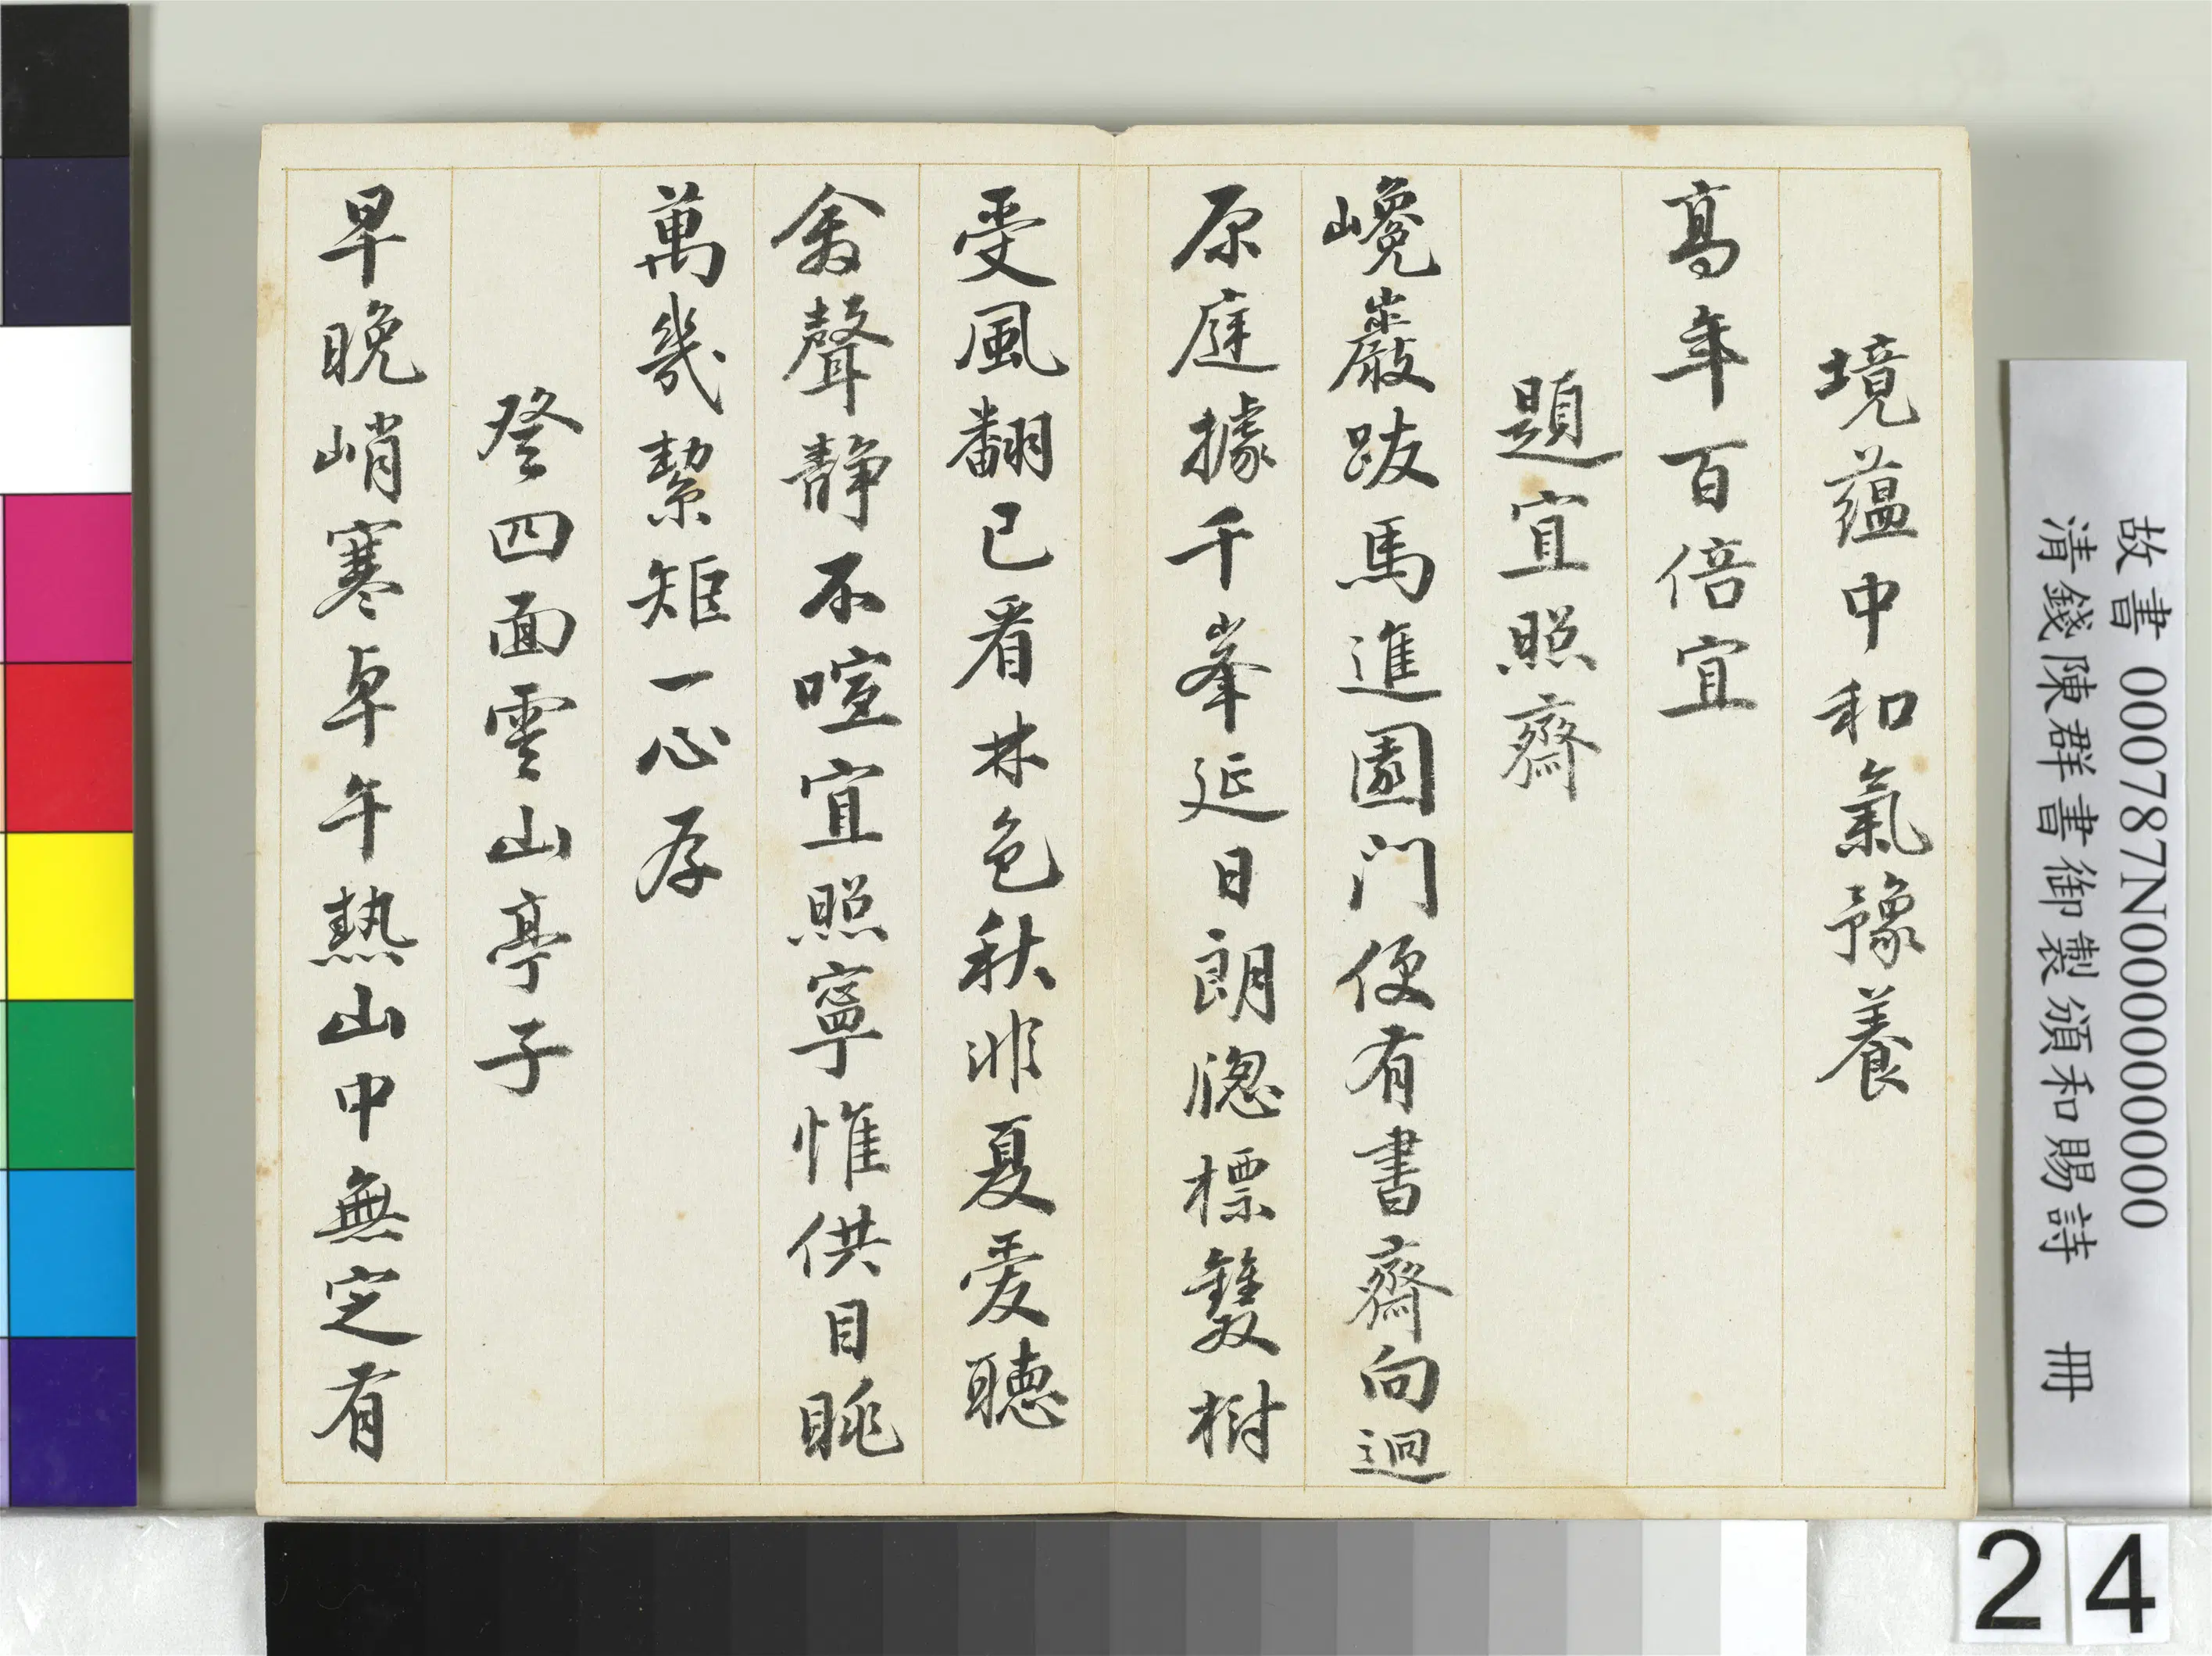 境蘊中和氣豫養
高年百倍宜
題宜照齋
巉巖跋馬進園門便有書齋向迥
原庭據千峯延日朗牎標雙樹
受風翻已看林色秋非夏愛聽
禽聲靜不喧宜照寧惟供目眺
萬幾絜矩一心存
登四面雲山亭子
早晚峭寒卓午熱山中無定有
故書 000787N000000000
清錢陳群書御製頒和賜詩 冊
24